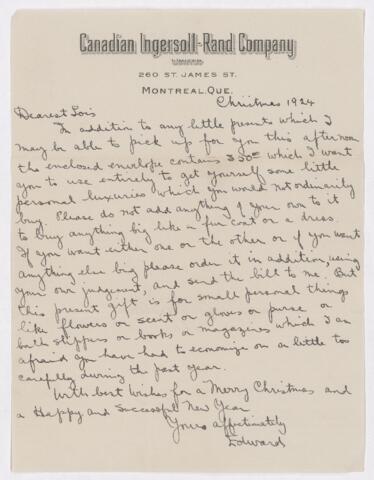 Canadian Ingersoll-Rand Company
LIMITED
260 ST. JAMES ST.
MONTREAL, QUE.
Christmas 1924
Dearest Lois
In addition to any little presents which I
may be able to pick up for you this afternoon
the enclosed envelope contains which I want
you to use entirely to get yourself some little
personal luxuries which you would not ordinarily
buy. Please do not add anything of your own to it
to buy anything big like a fur coat or a dress.
If you want either one or the other or if you want
anything else big please order it in addition, using
your own judgement, and send the bill to me. But
this present gift is for small personal things
like flowers or scent or gloves or purse or
bath slippers or books or magazines which I am
afraid you have had to economize on a little too
carefully during the past year.
With best wishes for a Merry Christmas and
a Happy and Successful New Year
Yours affectionately
Edward